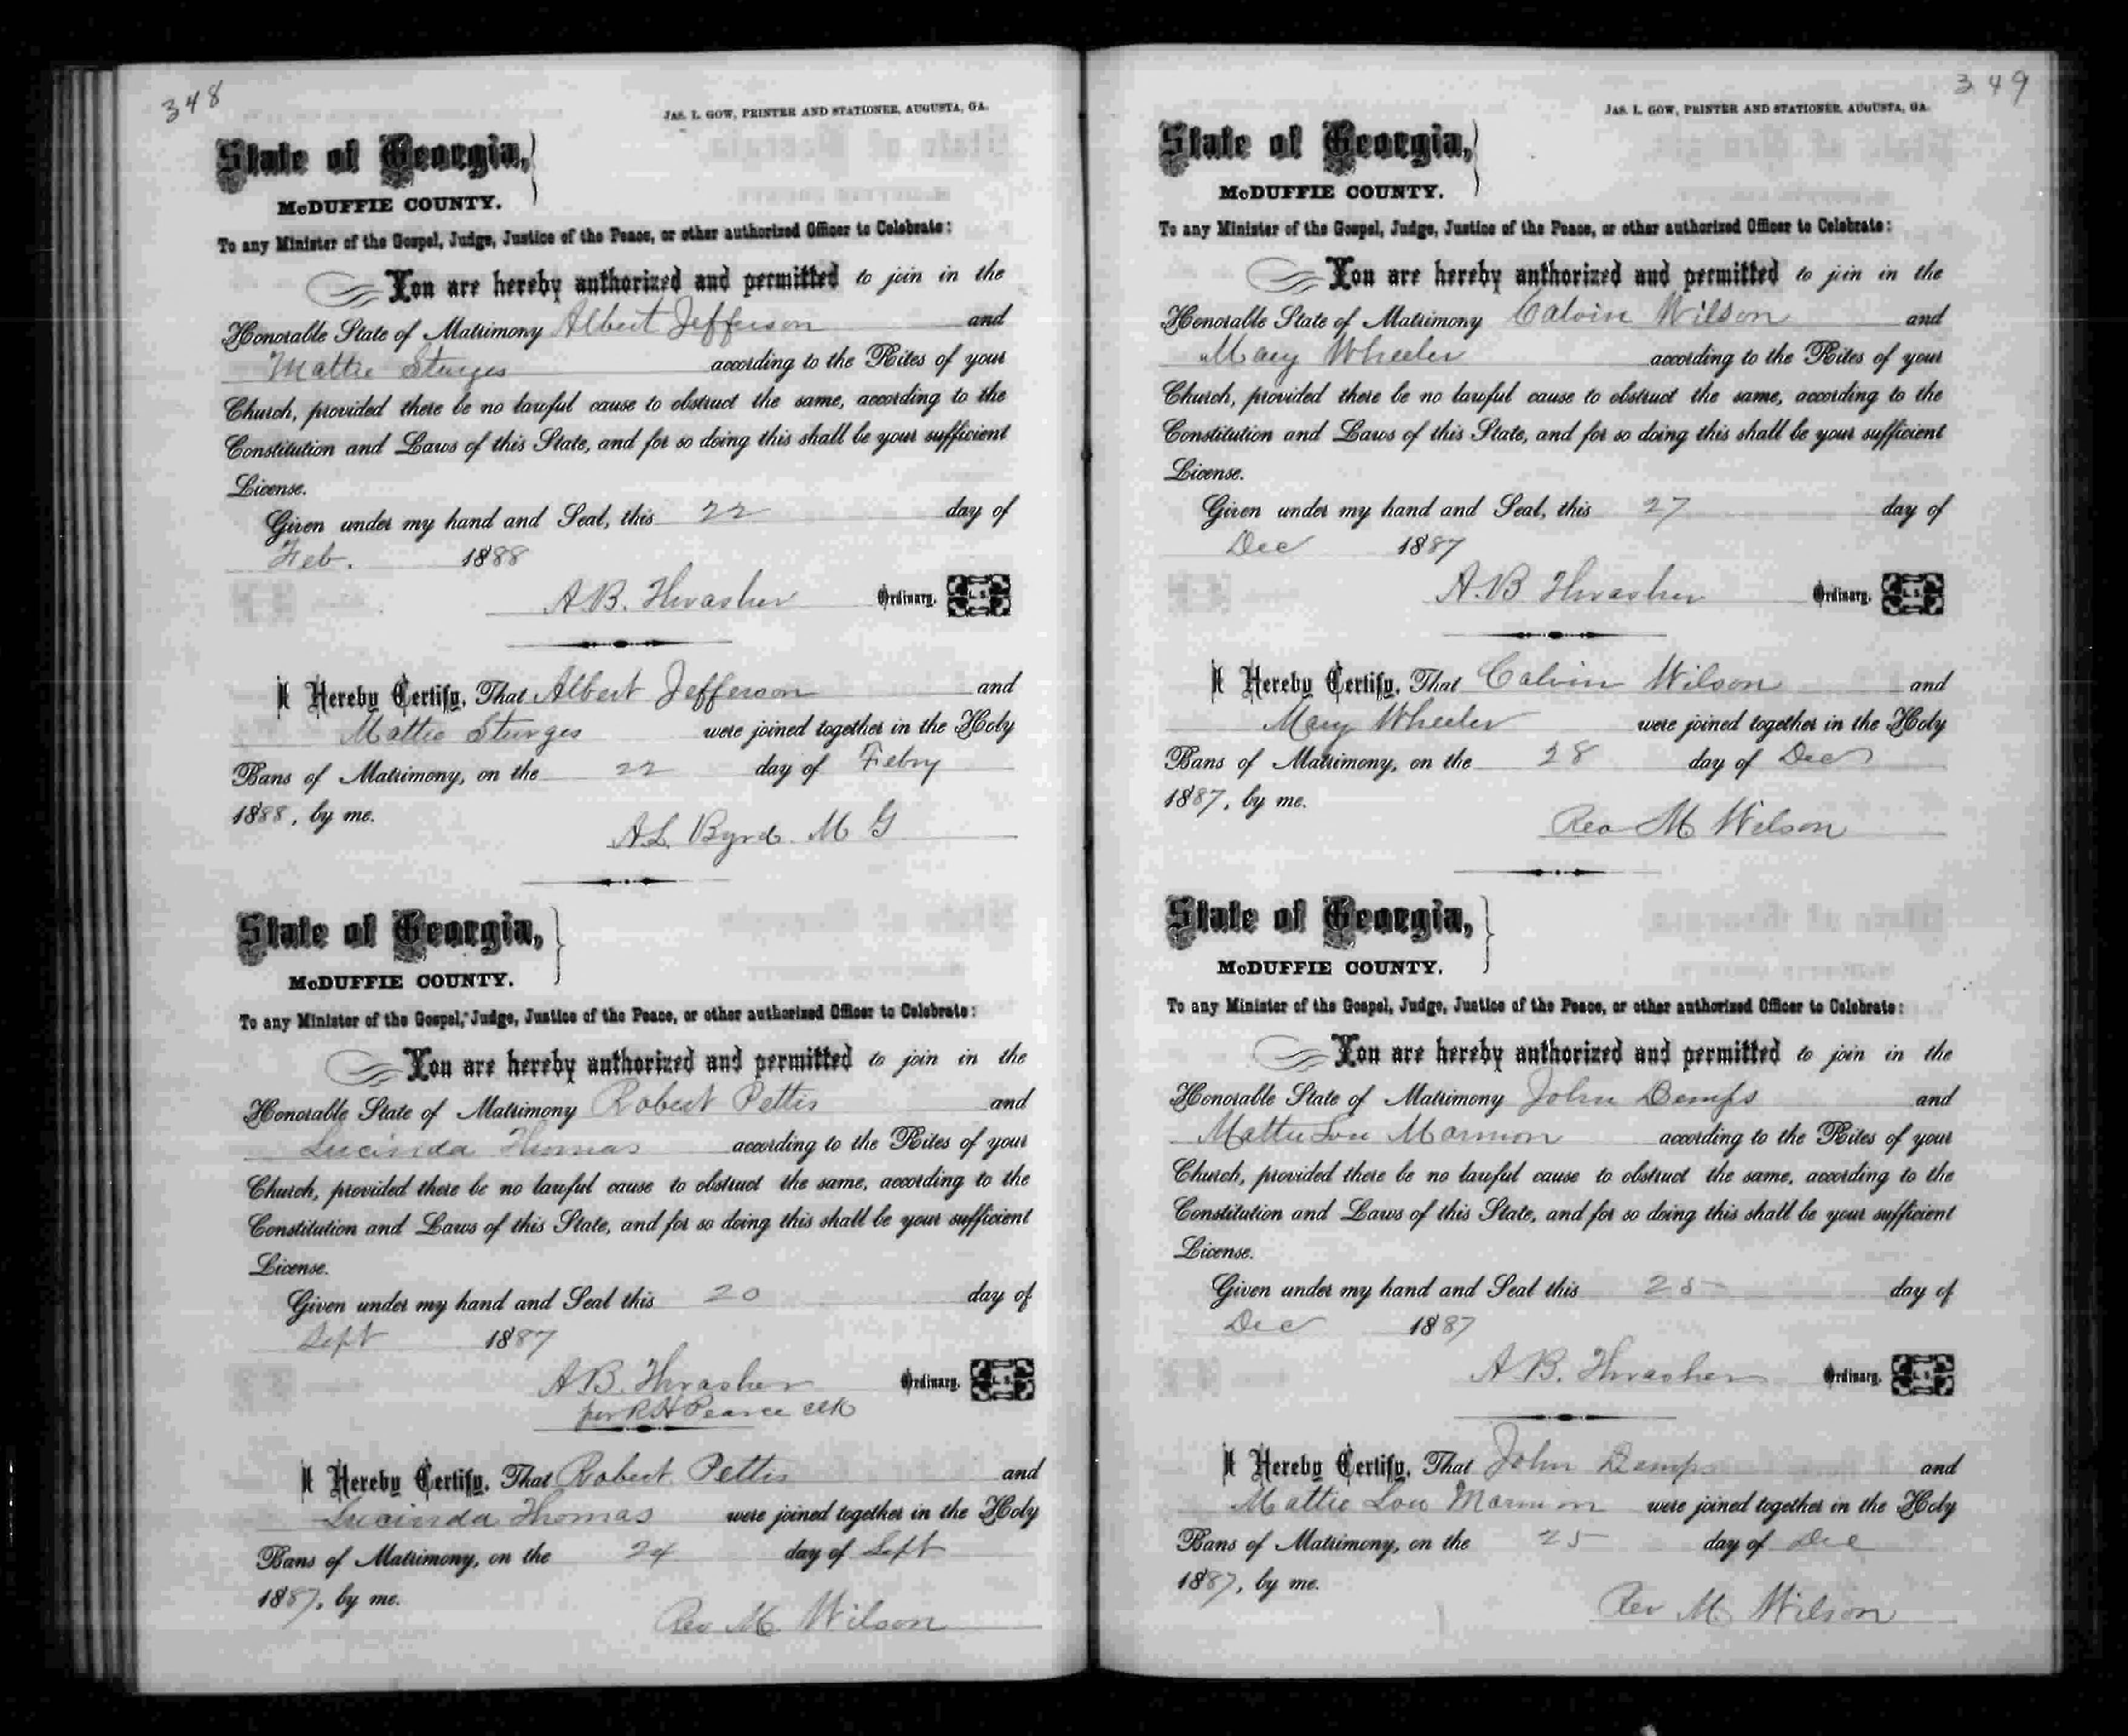 348
JAS. L. GOW, PRINTER AND STATIONER, AUGUSTA, GA.
State of Georgia,
McDUFFIE COUNTY.
To any Minister of the Gospel, Judge, Justice of the Peace, or other authorized Officer to Celebrate:
You are hereby authorized and permitted to join in the
Honorable State of Matrimony Albert Jefferson and
Mattie Sturges according to the Rites of your
Church, provided there be no lawful cause to obstruct the same, according to the
Constitution and Laws of this State, and for so doing this shall be your sufficient
License.
Given under my hand and Seal, this 22 day of
Feb. 1888
A.B. Thrasher Ordinary. L.S.
I Hereby Certify, That Albert Jefferson and
Mattie Sturges were joined together in the Holy
Bans of Matrimony, on the 22 day of Febry
1888, by me.
A.L. Byrd. M G
State of Georgia,
McDUFFIE COUNTY.
To any Minister of the Gospel, Judge, Justice of the Peace, or other authorized Officer to Celebrate:
You are hereby authorized and permitted to join in the
Honorable State of Matrimony Robert Pettis and
Lucinda Thomas according to the Rites of your
Church, provided there be no lawful cause to obstruct the same, according to the
Constitution and Laws of this State, and for so doing this shall be your sufficient
License.
Given under my hand and Seal this 20 day of
Sept 1887
A.B. Thrasher Ordinary. L.S.
per R H Pearce clk
I Hereby Certify, That Robert Pettis and
Lucinda Thomas were joined together in the Holy
Bans of Matrimony, on the 24 day of Sept
1887, by me.
Rev M. Wilson
349
JAS. L. GOW, PRINTER AND STATIONER, AUGUSTA, GA.
State of Georgia,
McDUFFIE COUNTY.
To any Minister of the Gospel, Judge, Justice of the Peace, or other authorized Officer to Celebrate:
You are hereby authorized and permitted to join in the
Honorable State of Matrimony Calvin Wilson and
Mary Wheeler according to the Rites of your
Church, provided there be no lawful cause to obstruct the same, according to the
Constitution and Laws of this State, and for so doing this shall be your sufficient
License.
Given under my hand and Seal, this 27 day of
Dec 1887
A.B Thrasher Ordinary. L.S.
I Hereby Certify, That Calvin Wilson and
Mary Wheeler were joined together in the Holy
Bans of Matrimony, on the 28 day of Dec
1887, by me.
Rev M Wilson
State of Georgia,
McDUFFIE COUNTY.
To any Minister of the Gospel, Judge, Justice of the Peace, or other authorized Officer to Celebrate:
You are hereby authorized and permitted to join in the
Honorable State of Matrimony John Demps and
Mattie Lou Marmon according to the Rites of your
Church, provided there be no lawful cause to obstruct the same, according to the
Constitution and Laws of this State, and for so doing this shall be your sufficient
License.
Given under my hand and Seal this 25 day of
Dec 1887
A.B. Thrasher Ordinary. L.S.
I Hereby Certify, That John Demps and
Mattie Lou Marmon were joined together in the Holy
Bans of Matrimony, on the 25 day of Dec
1887, by me.
Rev M Wilson